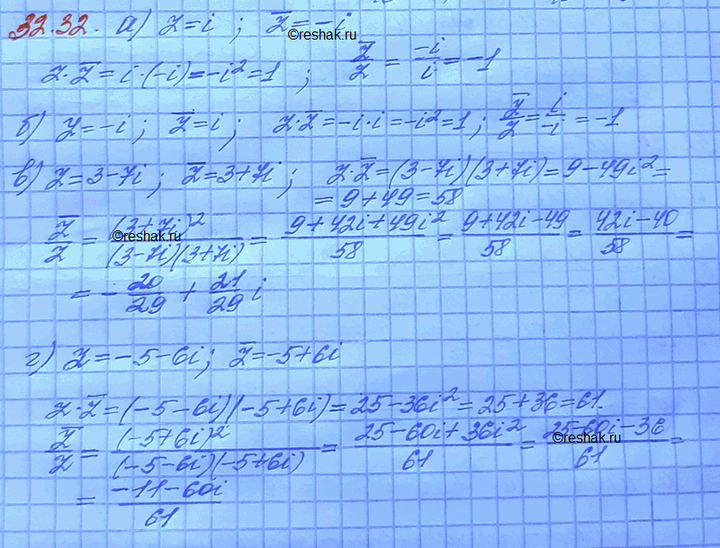 32.32. а) z = i ; z̅ = -i
z·z̅ = i·(-i) = -i² = 1 ; z̅/z = -i/i = -1
б) z = -i ; z̅ = i ; z·z̅ = -i·i = -i² = 1 ; z̅/z = i/-i = -1
в) z = 3-7i ; z̅ = 3+7i ; z·z̅ = (3-7i)(3+7i) = 9-49i² =
= 9+49 = 58
z̅/z = (3+7i)²/(3-7i)(3+7i) = 9+42i+49i²/58 = 9+42i-49/58 = 42i-40/58 =
= -20/29 + 21/29 i
г) z = -5-6i ; z̅ = -5+6i
z·z̅ = (-5-6i)(-5+6i) = 25-36i² = 25+36 = 61.
z̅/z = (-5+6i)²/(-5-6i)(-5+6i) = 25-60i+36i²/61 = 25-60i-36/61 =
= -11-60i/61
©reshak.ru
©reshak.ru
©reshak.ru